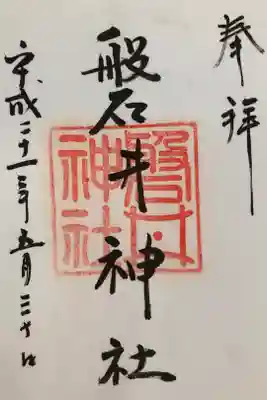 奉拝
磐井神社
磐井神社
平成二十一年五月三十日